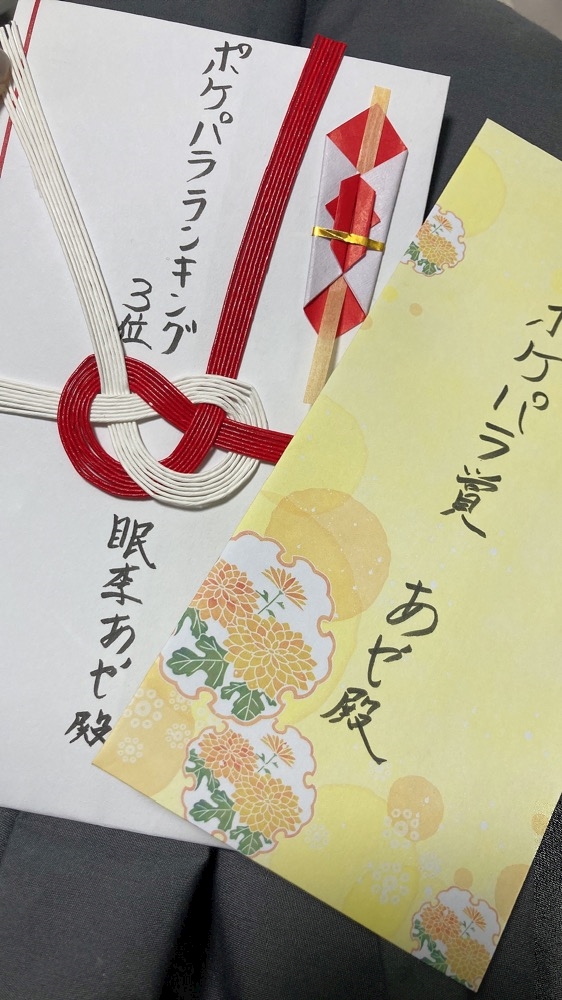 ポケパラランキング
3位
眠杢あぜ殿
ポケパラ賞
あぜ殿